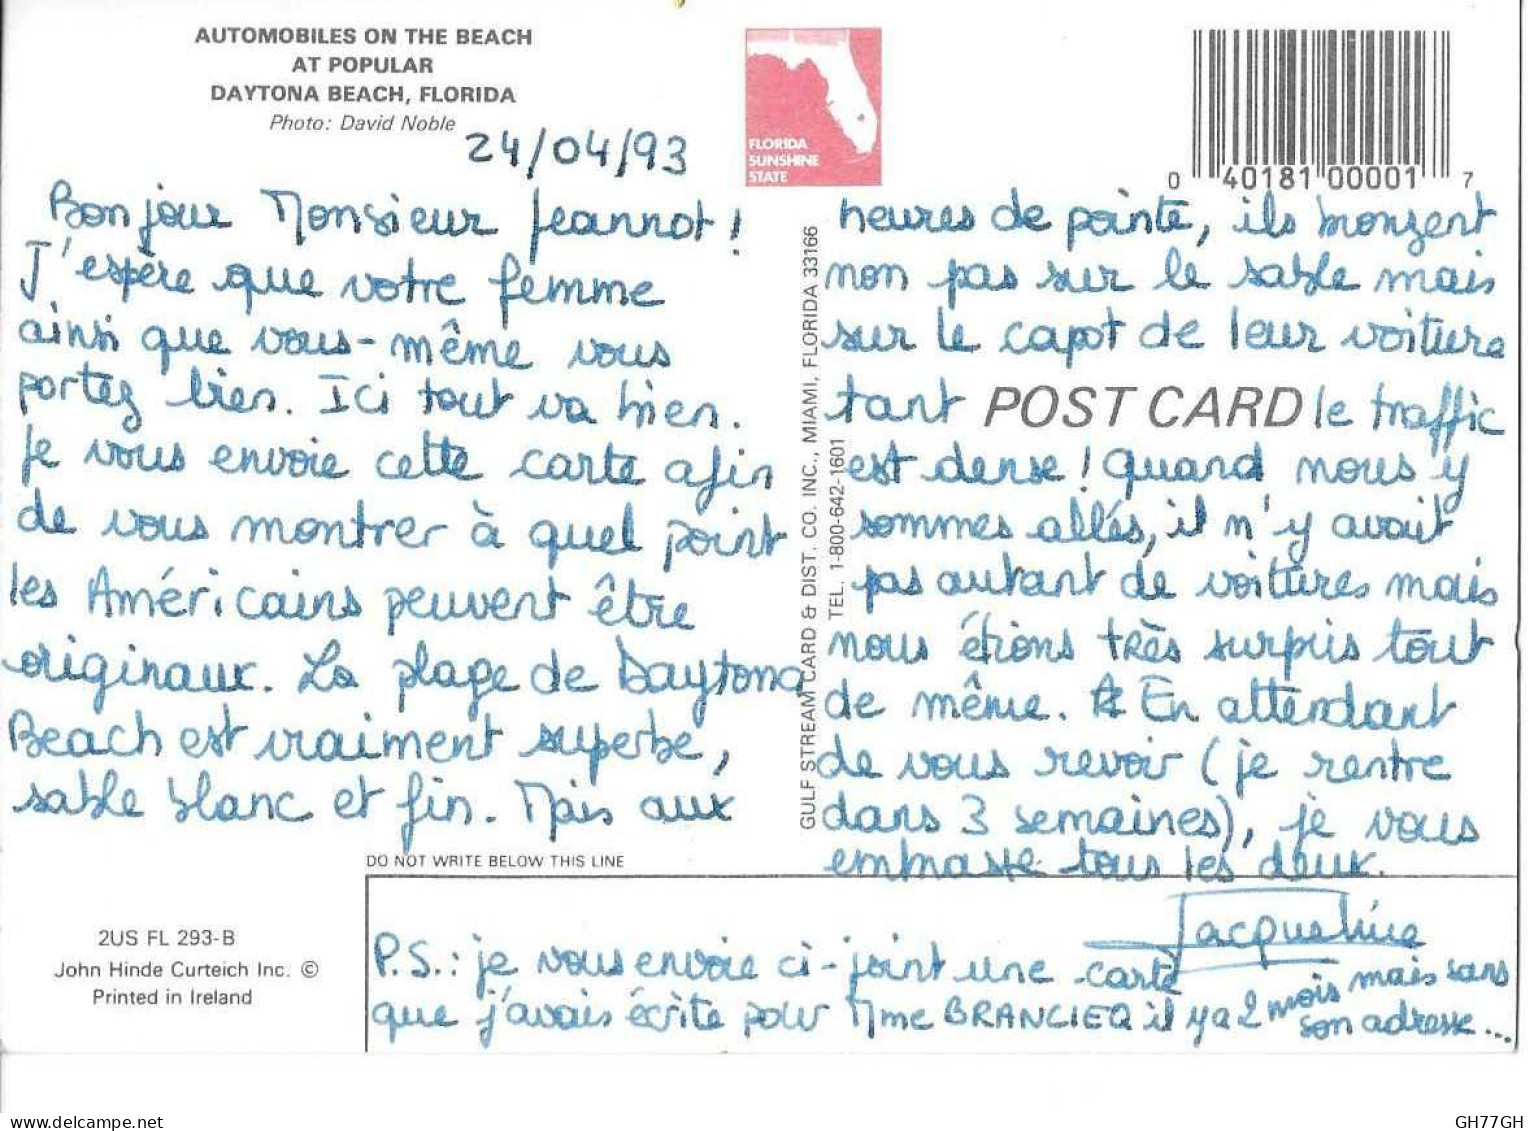 AUTOMOBILES ON THE BEACH
AT POPULAR
DAYTONA BEACH, FLORIDA
Photo: David Noble
24/04/93
Bonjour Monsieur Jeannot!
J'espère que votre femme
ainsi que vous-même vous
portez bien. Ici tout va bien.
Je vous envoie cette carte afin
de vous montrer à quel point
les Américains peuvent être
originaux. La plage de Daytona
Beach est vraiment superbe,
sable blanc et fin. Mais aux
DO NOT WRITE BELOW THIS LINE
2US FL 293-B
John Hinde Curteich Inc. ©
Printed in Ireland
FLORIDA
SUNSHINE
STATE
0 40181 00001 7
GULF STREAM CARD & DIST. CO. INC., MIAMI, FLORIDA 33166
TEL. 1-800-642-1601
heures de pointe, ils bronzent
non pas sur le sable mais
sur le capot de leur voiture
tant POST CARD le traffic
est dense! Quand nous y
sommes allés, il n'y avait
pas autant de voitures mais
nous étions très surpris tout
de même. En attendant
de vous revoir (je rentre
dans 3 semaines), je vous
embrasse tous les deux.
Jacqueline
P.S.: je vous envoie ci-joint une carte
que j'avais écrite pour Mme BRANCIEQ il y a 2 mois mais sans
son adresse...
GH77GH